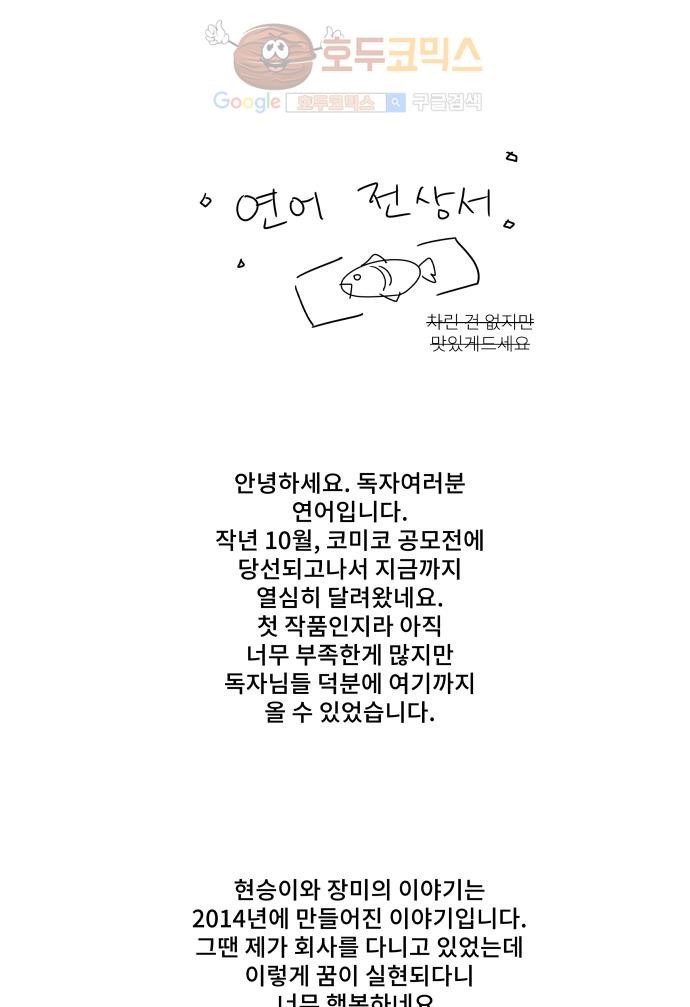 호두코믹스
Google 호두코믹스 구글검색
연어 전상서
차린 건 없지만
맛있게드세요
안녕하세요. 독자여러분
연어입니다.
작년 10월, 코미코 공모전에
당선되고나서 지금까지
열심히 달려왔네요.
첫 작품인지라 아직
너무 부족한게 많지만
독자님들 덕분에 여기까지
올 수 있었습니다.
현승이와 장미의 이야기는
2014년에 만들어진 이야기입니다.
그땐 제가 회사를 다니고 있었는데
이렇게 꿈이 실현되다니
너무 행복하네요